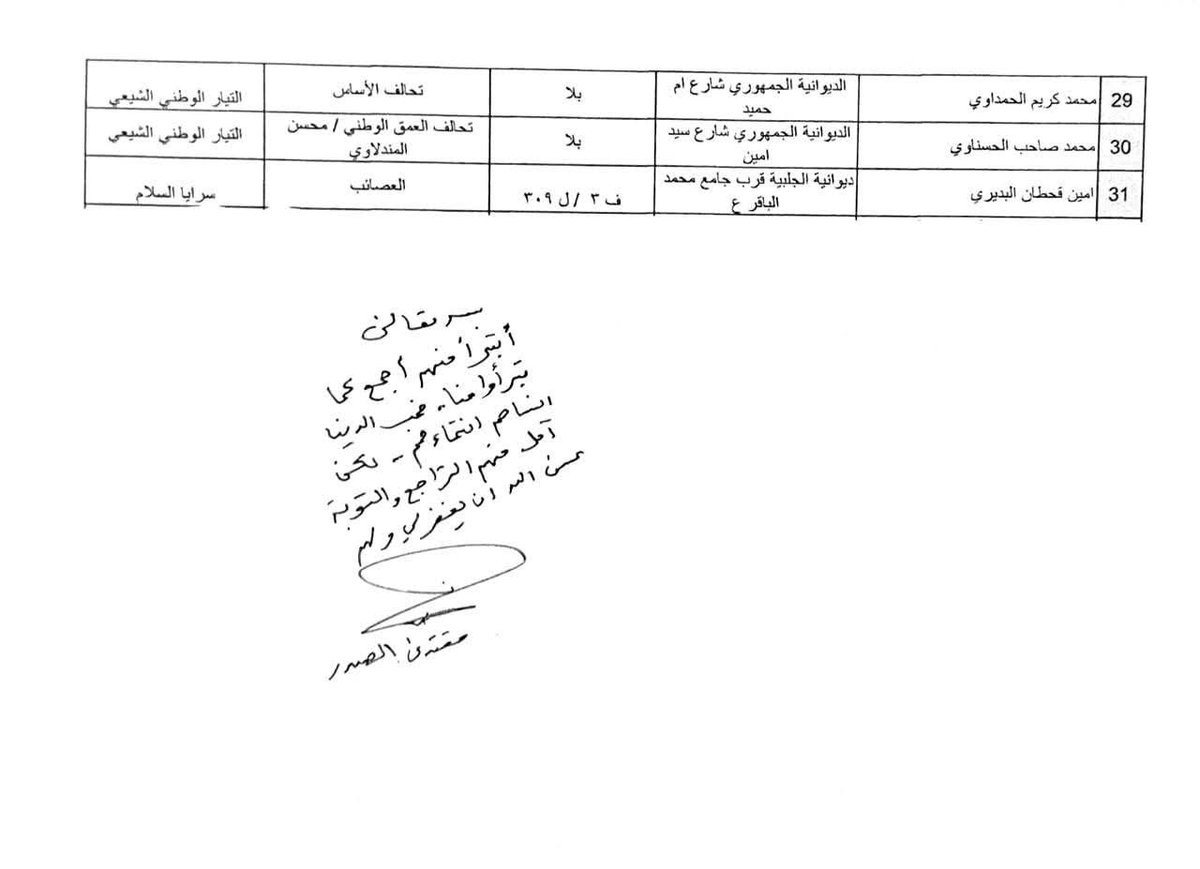 29 محمد كريم الحمداوي الديوانية الجمهوري شارع ام حميد بلا تحالف الأساس التيار الوطني الشيعي
30 محمد صاحب الحسناوي الديوانية الجمهوري شارع سيد امين بلا تحالف العمق الوطني / محسن المندلاوي التيار الوطني الشيعي
31 امين قحطان البديري ديوانية الجلبية قرب جامع محمد الباقر ع ف ٣ / ل ٣٠٩ العصائب سرايا السلام
بسمه تعالى
أبتبرأ منهم أجمع كما
تبرأوا منا.. فحب الدنيا
أنساهم انتماءهم .. لكني
آمل منهم التراجع والتوبة
عسى الله ان يغفر لي ولهم
مقتدى الصدر